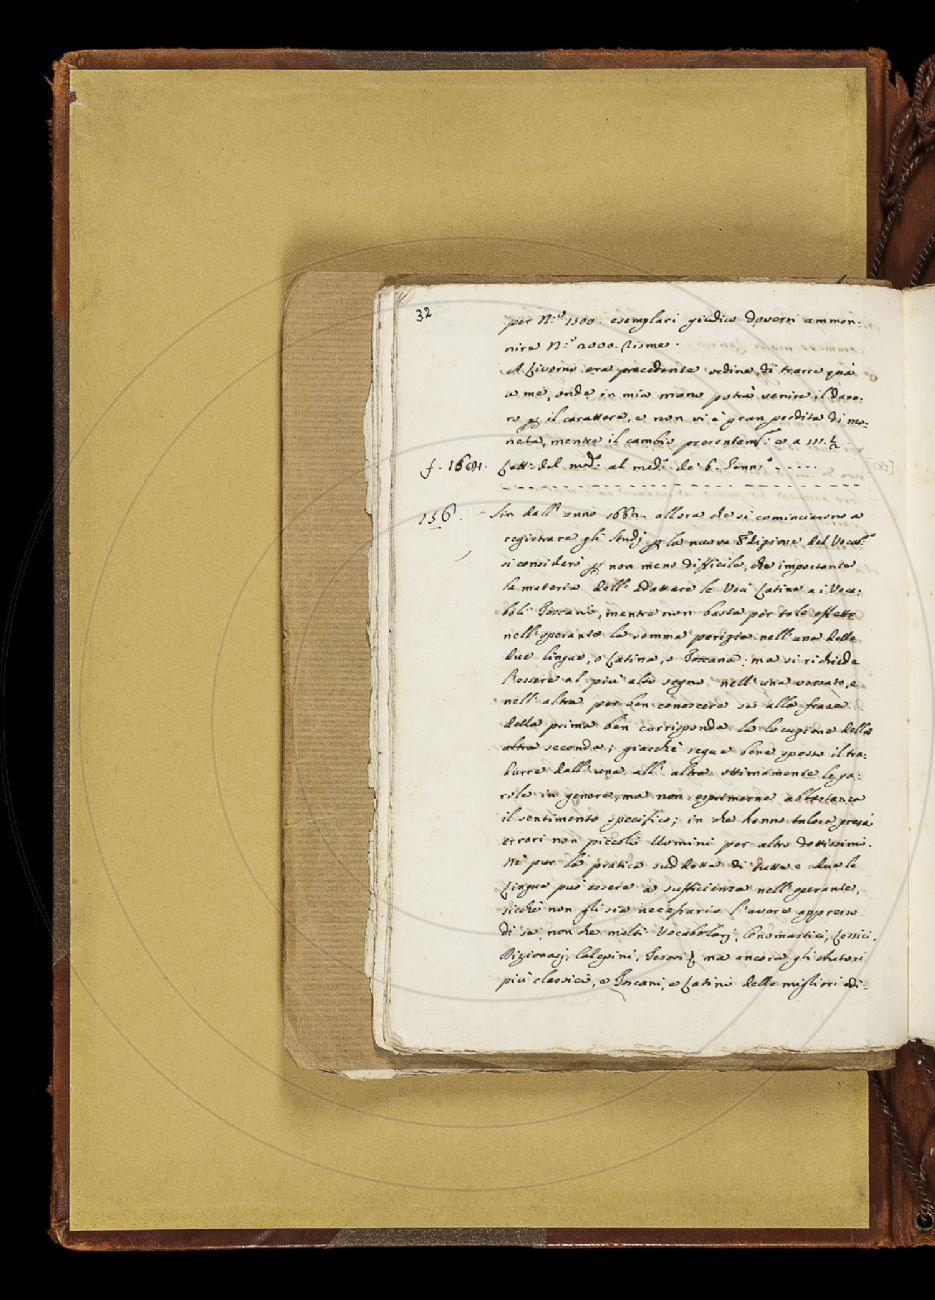 32
per N.º 1500. esemplari giudico doversi ammon:
nire N.º 2000. Risme.
A Livorno era precedente ordine, di trarre quà
a me, onde in mia mano potrà venire il dana:
ro p il carattere, e non vi è gran perdita di mo:
neta, mentre il cambio presentem.e è a 111.½.
f. 1691. Lett: del med.º al med.º de' 6. Genn.º
136. Sin dall' anno 1664. allora che si cominciarono a
registrare gli Studj p la nuova Edizione del Vocab.º
si considerò p non meno difficile, che importante
la materia dell' Adattare le Voci Latine a i Voca:
boli Toscani, mentre non basta per tale effetto
nell' operante la somma perizia nell' una delle
due lingue, o Latina, o Toscana: ma si richiede
l'essere al più alto segno nell' una versato, e
nell' altra per ben conoscere se alla frase
della prima ben corrisponda la locuzione della
altra seconda; giacchè segue bene spesso il tra:
durre dall' una all' altra ottimamente le pa:
role in genere, ma non esprimerne abbastanza
il sentimento specifico; in che hanno talora preso
errori non piccoli Uomini per altro dottissimi.
Nè pur la pratica suddetta di tutte e due le
Lingue può essere a sufficienza nell' operante,
sicchè non gli sia necessario l'avere appresso
di se, non che molti Vocabolarj, Onomastici, Lessici,
Dizionarj, Calepini, Tesori &c. ma ancora gli Autori
più classici, e Toscani, e Latini delle migliori edi: